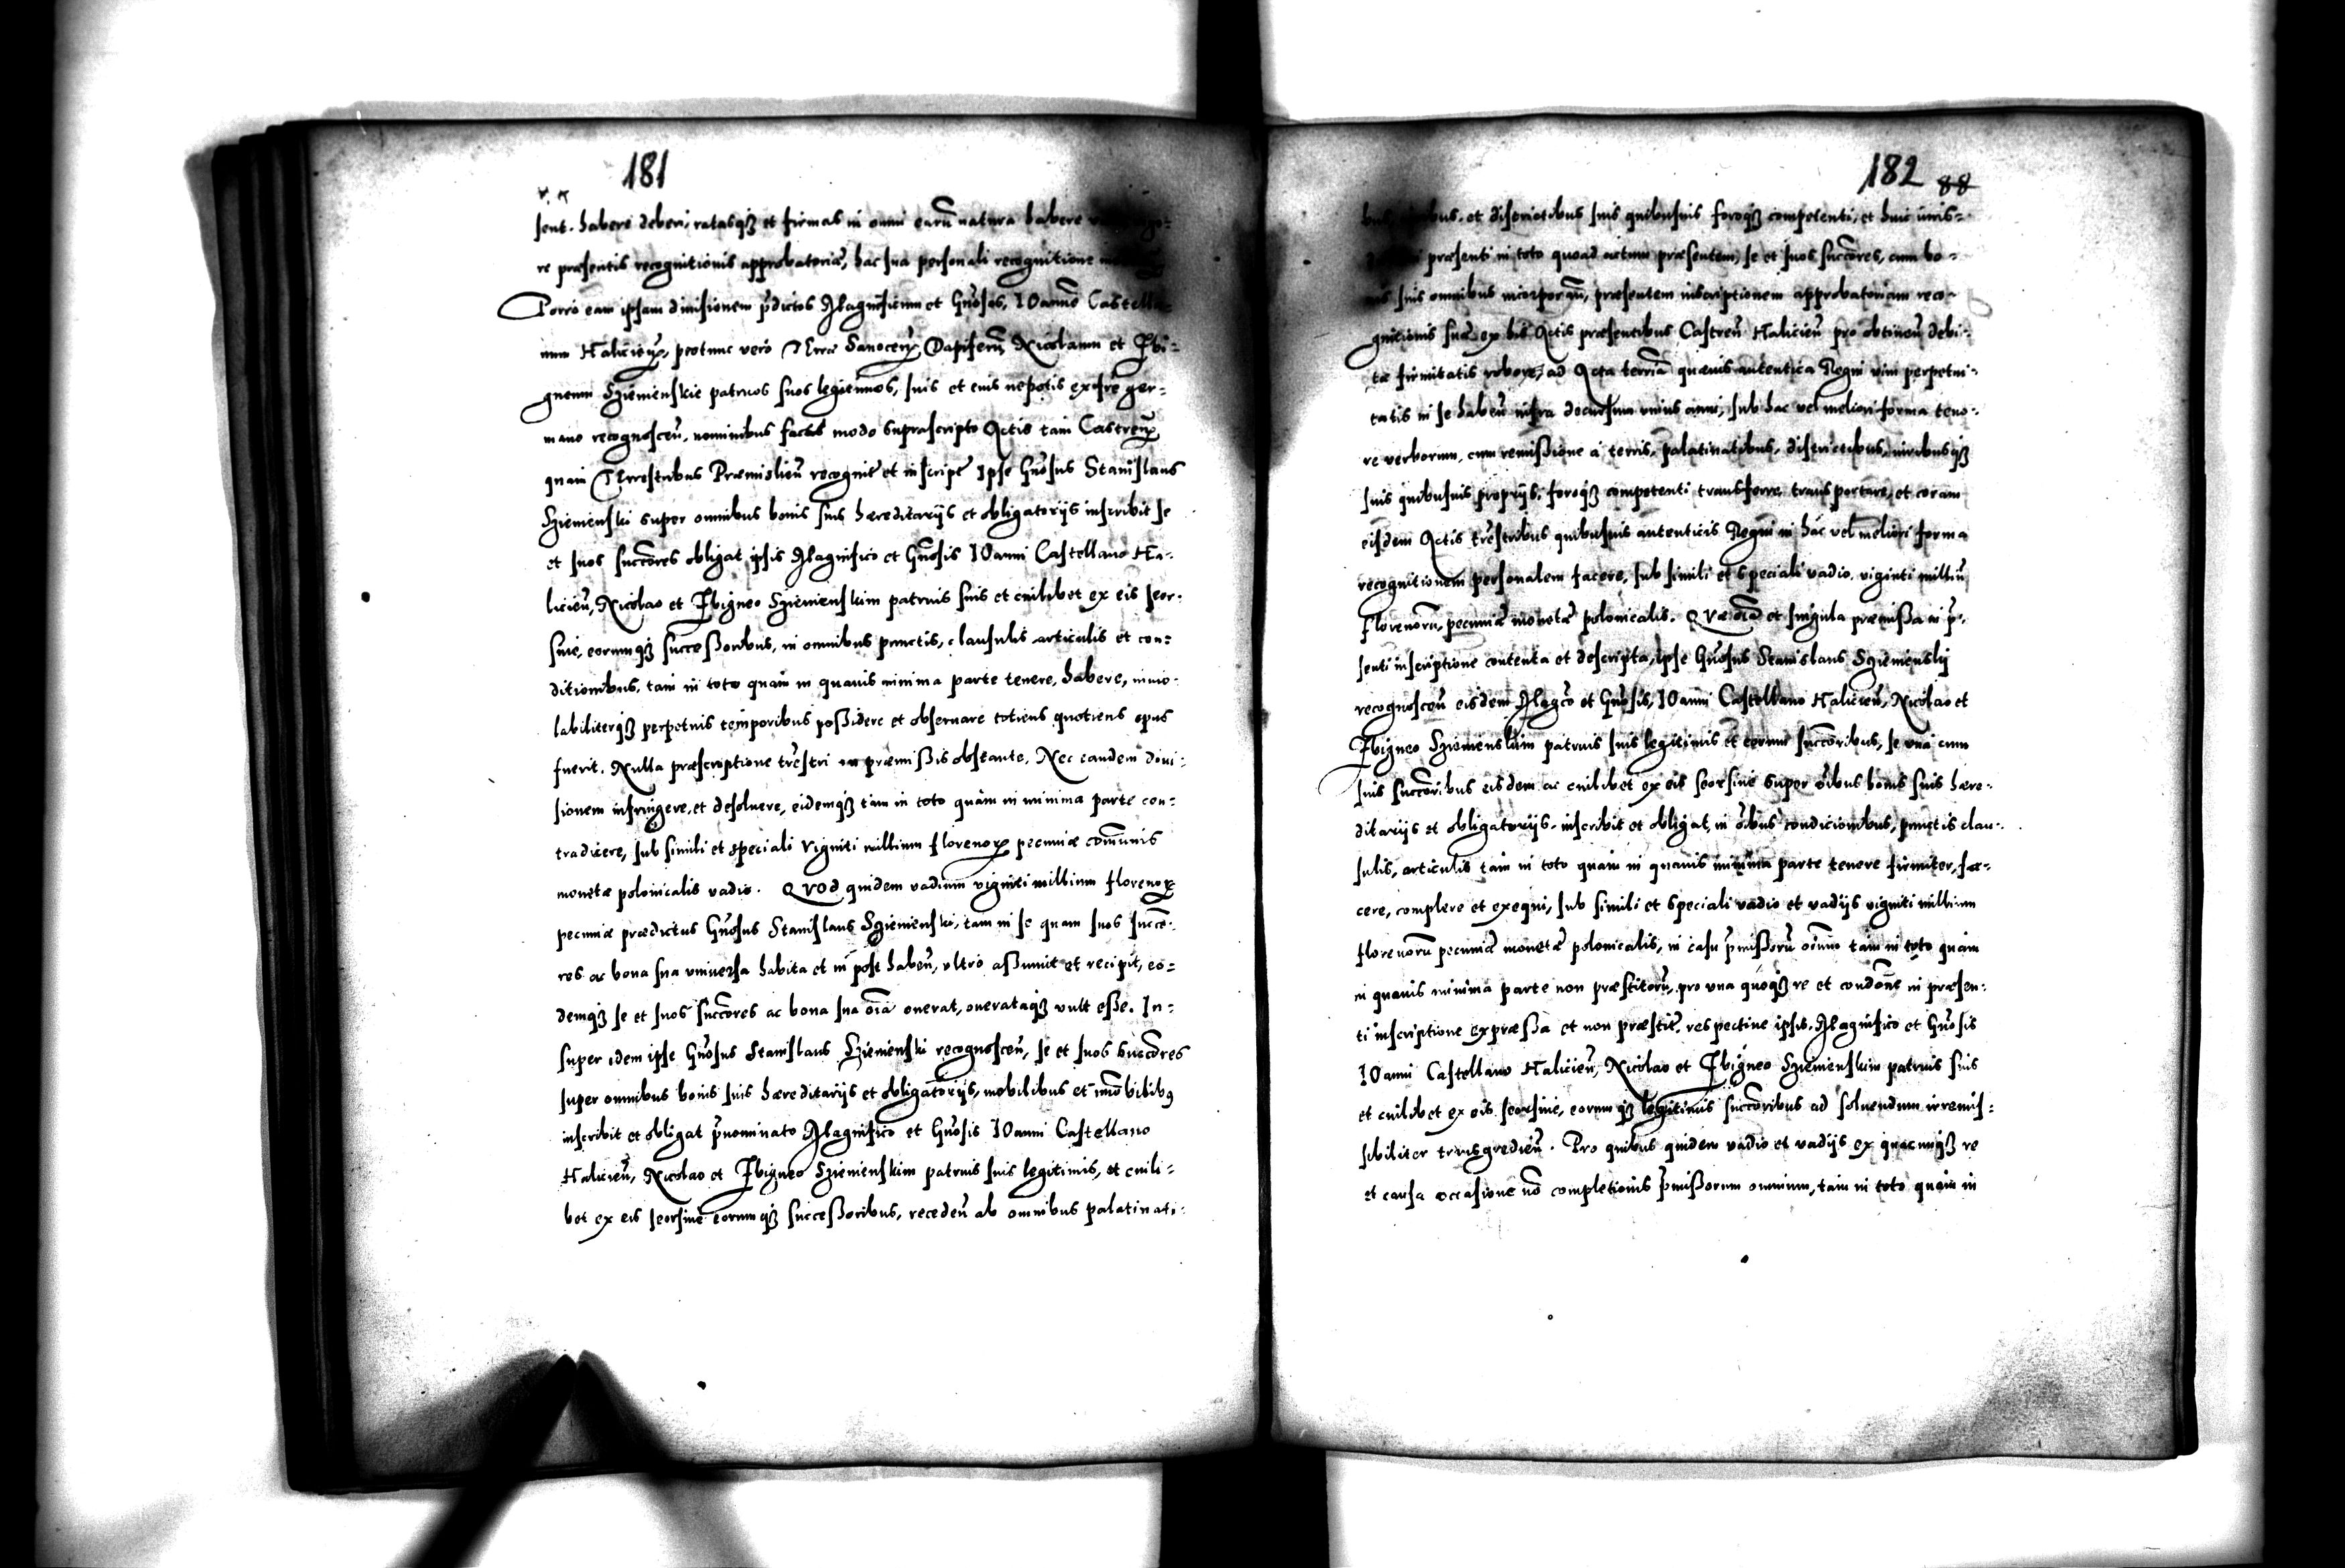 181
sent. habere deberi, ratasq3 et firmas in omni earū natura habere
re præsentis recognitionis approbatoriæ, hac sua personali recognitione
Porro eam ipsam diuisionem p̄dictos Magnificum et Gñosos, IOannē Castella-
num Halicieñ, protunc vero Terræ Sanoceñ Dapiferū Nicolaum et Zbi-
gneum Sziemienskie patruos suos legitimos, suis et eius nepotis ex fr̃e ger-
mano recognosceñ, nominibus factis modo suprascripto Actis tam Castreñ
quam Terrestribus Præmislieñ recognit et inscript Ipse Gñosus Stanislaus
Sziemienski super omnibus bonis suis hæreditarijs et obligatorijs inscribit se
et suos succõres obligat ipsis Magnifico et Gñosis IOanni Castellano Ha-
licieñ, Nicolao et Zbigneo Sziemienskim patruis suis et cuilibet ex eis seor-
siue, eorumq3 successoribus, in omnibus punctis, clausulis articulis et con-
ditionibus, tam in toto quam in quauis minima parte tenere, habere, inuio-
labiliterq3 perpetuis temporibus possidere et obseruare totiens quotiens opus
fuerit. Nulla præscriptione trẽstri in præmissis obstante. Nec eandem diui-
sionem infringere, et desoluere, eidemq3 tam in toto quam in minima parte con-
tradicere, sub simili et speciali Viginti millium florenorꝝ pecuniæ cõmunis
monetæ polonicalis vadio. QVOd quidem vadium viginti millium florenorꝝ
pecuniæ prædictus Gñosus Stanislaus Sziemienski, tam in se quam suos succõ-
res ac bona sua vniuersa habita et in post habeñ, vltro assumit et recipit, eo-
demq3 se et suos succõres ac bona sua õia onerat, onerataq3 vult esse. In-
super idem ipse Gñosus Stanislaus Sziemienski recognosceñ, se et suos succõres
super omnibus bonis suis hæreditarijs et obligatorijs, mobilibus et immõbilibꝯ
inscribit et obligat p̄nominato Magnifico et Gñosis IOanni Castellano
Halicieñ, Nicolao et Zbigneo Sziemienskim patruis suis legitimis, et cuili-
bet ex eis seorsiue eorumq3 successoribus, recedeñ ab omnibus palatinati-
182 88
et districtibus suis quibusuis foroq3 competenti, et huic iuris-
præsenti in toto quoad actum præsentem, se et suos succõres, cum bo-
suis omnibus incorporañ, præsentem inscriptionem approbatoriam reco-
gnitionis suæ ex his Actis præsentibus Castreñ Halicieñ pro obtineñ debi-
tæ firmitatis robore, ad Acta terria quæuis autentica Regni vim perpetui-
tatis in se habeñ infra decursum vnius anni, sub hac vel meliori forma teno-
re verborum, cum remissione a terris, palatinatibus, districtibus, iuribusq3
suis quibusuis proprijs, foroq3 competenti transferre transportare, et coram
eisdem Actis trẽstribus quibusuis autenticis Regni in hac vel meliori forma
recognitionem personalem facere, sub simili et speciali vadio viginti milliū
florenorū, pecuniæ monetæ polonicalis. QVæ õia et singula præmissa in p̄-
senti inscriptione contenta et descripta, ipse Gñosus Stanislaus Sziemienskij
recognosceñ eisdem Magco et Gñosis, IOanni Castellano Halicieñ, Nicolao et
Zbigneo Sziemienskim patruis suis legitimis et eorum succõribus, se vna cum
suis succõribus eisdem ac cuilibet ex eis seorsiue super õibus bonis suis hære-
ditarijs et obligatorijs, inscribit et obligat, in õibus condicionibus, punctis clau-
sulis, articulis tam in toto quam in quauis minima parte tenere firmiter, fa-
cere, complere et exequi, sub simili et speciali vadio et vadijs viginti millium
florenorū pecuniæ monetæ polonicalis, in casu p̄missorū oĩmno tam in toto quam
in quauis minima parte non præstitorū, pro vna quoq3 re et condõne in præsen-
ti inscriptione expræssa et non præstit, respectiue ipsis Magnifico et Gñosis
IOanni Castellano Halicieñ, Nicolao et Zbigneo Sziemienskim patruis suis
et cuilibet ex eis seorsiue, eorumq3 legitimis succõribus ad soluendum irremis-
sibiliter transgredieñ. Pro quibus quidem vadio et vadijs ex quacunq3 re
et causa occasione nõ completionis p̄missorum omnium, tam in toto quam in